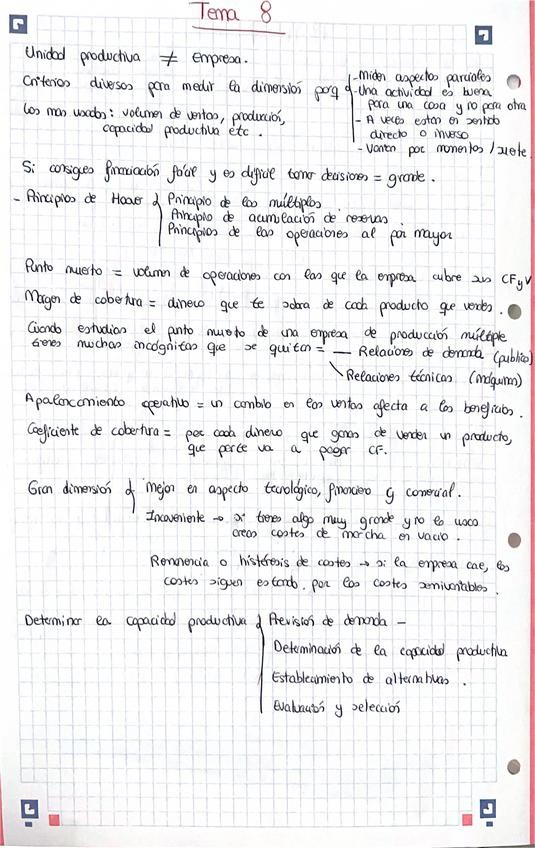 Tema 8
Unidad productiva ≠ empresa.
Criterios diversos para medir la dimensión porq { - Miden aspectos parciales
- Una actividad es buena para una cosa y no para otra
- A veces estan en sentido directo o inverso
- Varian por momentos / suerte.
Los mas usados: volumen de ventas, producción,
capacidad productiva etc.
Si consigues financiación fácil y es dificil tomar decisiones = grande.
- Principios de Hoover { Principio de los múltiplos.
Principio de acumulación de reservas.
Principios de las operaciones al por mayor
Punto muerto = volumen de operaciones con las que la empresa cubre sus CF y V
Margen de cobertura = dinero que te sobra de cada producto que vendes.
Cuando estudias el punto muerto de una empresa de producción múltiple
tienes muchas incógnitas que se quitan = — Relaciones de demanda (publico)
\ Relaciones técnicas (máquinas)
Apalancamiento operativo = un cambio en las ventas afecta a los beneficios.
Coeficiente de cobertura = por cada dinero que ganas de vender un producto,
que parte va a pagar CF.
Gran dimensión { mejor en aspecto tecnológico, financiero y comercial.
Inconveniente → si tienes algo muy grande y no lo usas
creas costes de marcha en vacio.
Remanencia o histéresis de costes → si la empresa cae, los
costes siguen estando. por los costes semivariables.
Determinar la capacidad productiva { Previsión de demanda —
Determinación de la capacidad productiva
Establecimiento de alternativas.
Evaluación y selección